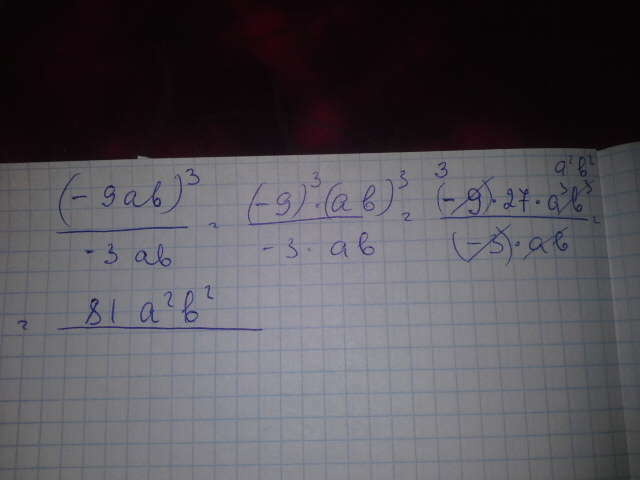 (-9ab)³ / -3ab = (-9)³·(ab)³ / -3·ab = (-9)·27·a³b³ / (-3)·ab = 3 a²b²
= 81 a²b²